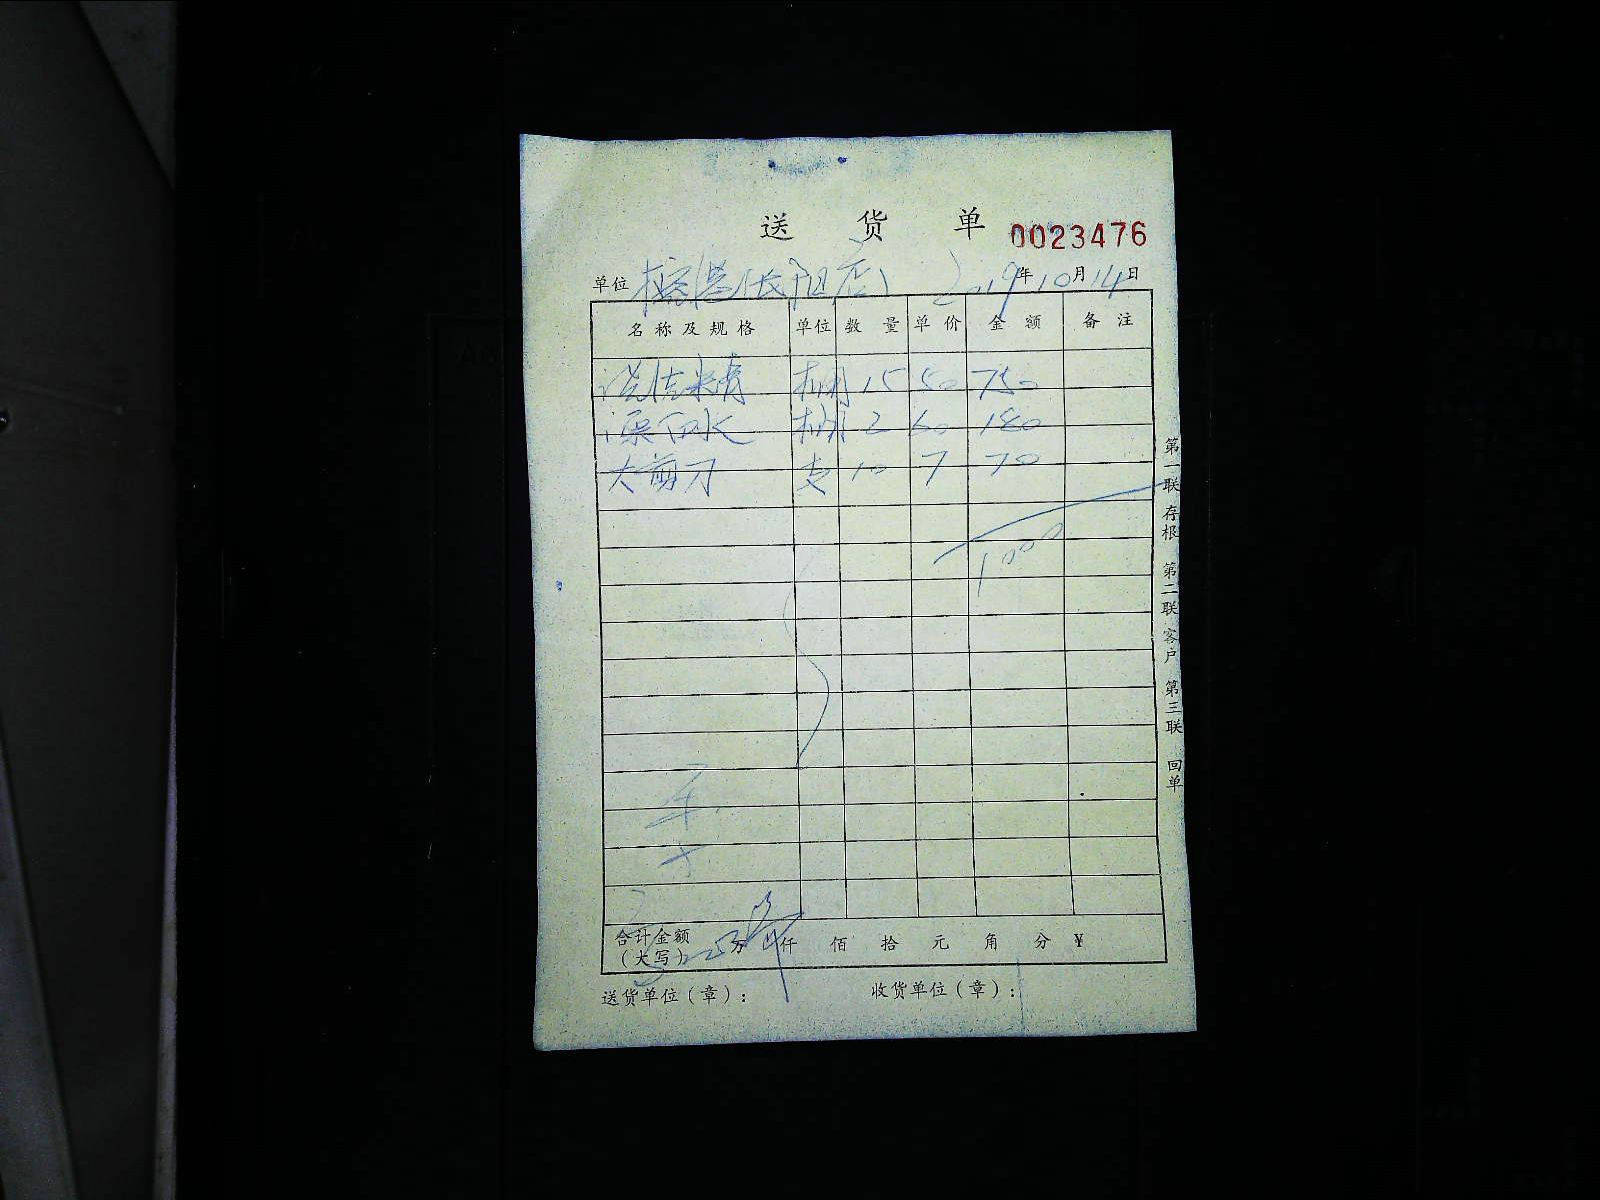 送 货 单 0023476
单位 榕港(长阳店) 2019年10月14日
名称及规格 单位 数量 单价 金额 备注
洗洁精 桶 15 50 750
漂白水 桶 3 60 180
大剪刀 支 10 7 70
1000
合计金额（大写） 万 仟 佰 拾 元 角 分 ¥
送货单位（章）： 收货单位（章）：
第一联 存根 第二联 客户 第三联 回单